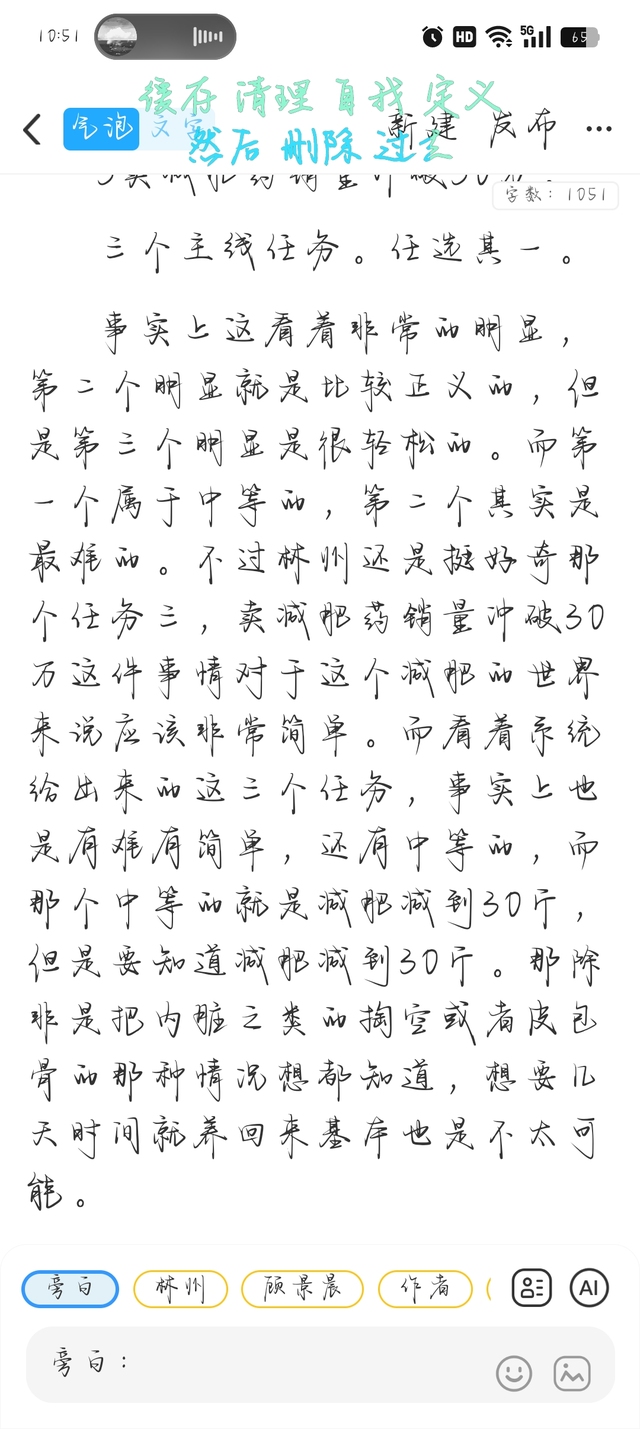 10:51
HD
5G
65
缓存 清理 自我 定义
气泡 文字 新建 发布
然后 删除 过去
字数：1051
三个主线任务。任选其一。
事实上这看着非常的明显，
第二个明显就是比较正义的，但
是第三个明显是很轻松的。而第
一个属于中等的，第二个其实是
最难的。不过林州还是挺好奇那
个任务三，卖减肥药销量冲破30
万这件事情对于这个减肥的世界
来说应该非常简单。而看着系统
给出来的这三个任务，事实上也
是有难有简单，还有中等的，而
那个中等的就是减肥减到30斤，
但是要知道减肥减到30斤。那除
非是把内脏之类的掏空或者皮包
骨的那种情况想都知道，想要几
天时间就养回来基本也是不太可
能。
旁白 林州 顾景晨 作者 AI
旁白：